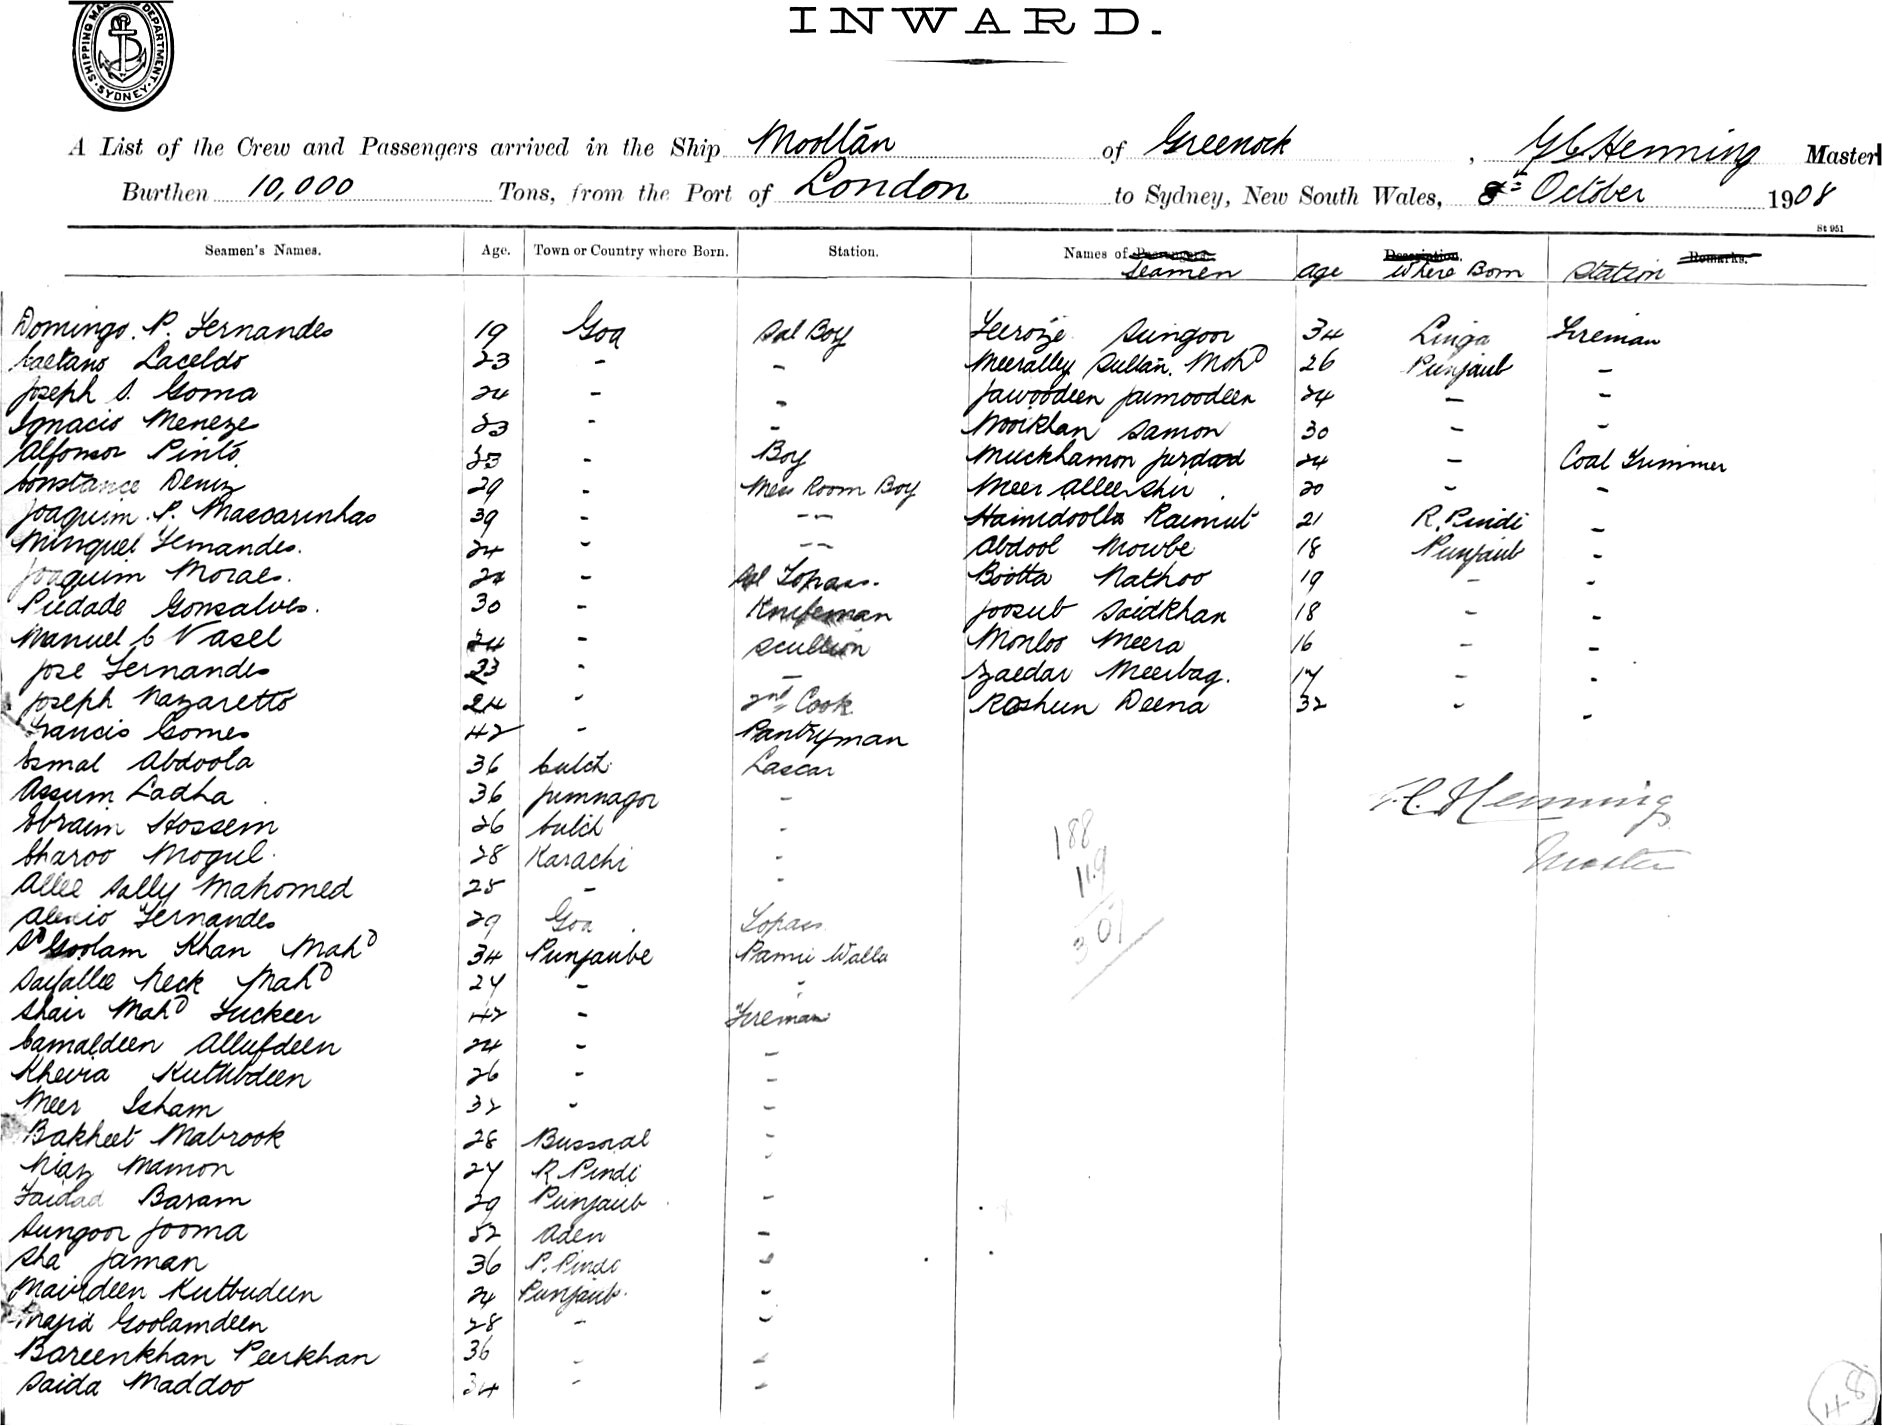 SHIPPING MASTER'S DEPARTMENT SYDNEY
INWARD.
A List of the Crew and Passengers arrived in the Ship Mooltan of Greenock , G C Henning Master
Burthen 10,000 Tons, from the Port of London to Sydney, New South Wales, October 1908
St 951
Seamen's Names. Age. Town or Country where Born. Station. Names of Passengers. Seamen Age Description. Where Born Station Remarks.
Domingo. P. Fernandes 19 Goa Sal Boy Feeroze Sungoor 34 Linga Fireman
Caetano Laceldo 23 - - Meeralley Sultan. Moh'd 26 Punjaub -
Joseph S. Goma 24 - - Jawoodeen Jumoodeen 24 - -
Ignacio Meneze 23 - - Samon 30 - -
Alfonsor Pinto 23 - Boy Muckhamon Jurdad 24 - Coal Trimmer
Constance Deniz 29 - Mess Room Boy Meer Alleesher 20 - -
Joaquim. P. Mascarinhas 39 - -- Hamidoolla Raimut 21 R. Pindi -
Minquel Fernandes. 24 - -- Abdool Mowbe 18 Punjaub -
Joaquim Moraes. 24 - Sal Topass. Bootta Nathoo 19 - -
Piedade Gonsalves. 30 - Knifeman Joosub Saidkhan 18 - -
Manuel C Vasel 24 - Scullion Monloo Meera 16 - -
Jose Fernandes 23 - - Zaedar Meerbag. 17 - -
Joseph Nazaretto 24 - 2nd Cook Roshun Deena 32 - -
Francis Gomes 42 - Pantryman
Esmal Abdoola 36 Cutch Lascar
Assum Ladha 36 Jumnagor -
Ebraim Hossem 26 Cutch -
Charoo Mogul. 28 Karachi -
Allee Sally Mahomed 25 - -
Alexio Fernandes 29 Goa Topass
Goolam Khan Mahd 34 Punjaube Pamie Walla
Saifallee Neck Mahd 27 - -
Shair Mahd Fuckeer 42 - Fireman
Camaldeen Allufdeen 24 - -
Kheira Kuttubdeen 26 - -
Meer Isham 32 - -
Bakheet Mabrook 28 Bussorah -
Niaz Mamon 27 R. Pindi -
Faidad Baram 29 Punjaub -
Sungoor Jooma 52 Aden -
Sha Jaman 36 R. Pindi -
Mairdeen Kutbudeen 24 Punjaub. -
Majid Goolamdeen 28 - -
Bareenkhan Peerkhan 36 - -
Saida Maddoo 34 - -
G.C. Henning
Master
188
119
307
48